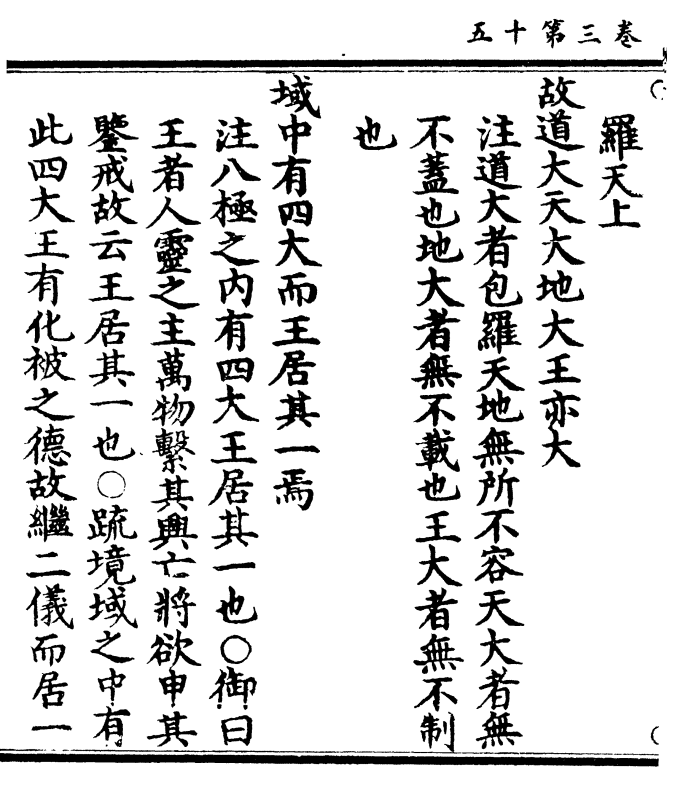 卷三第十五
羅天上
故道大天大地大王亦大
注道大者包羅天地無所不容天大者無
不蓋也地大者無不載也王大者無不制
也
域中有四大而王居其一焉
注八極之内有四大王居其一也○御曰
王者人靈之主萬物繫其興亡將欲申其
鑒戒故云王居其一也○疏境域之中有
此四大王有化被之德故繼二儀而居一